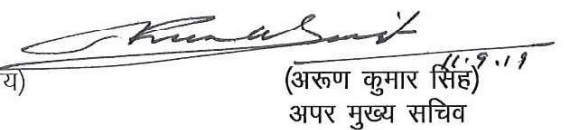 11.9.19
य) (अरूण कुमार सिंह)
अपर मुख्य सचिव